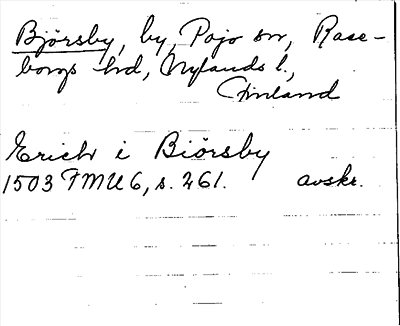 Björsby, by, Pojo sn, Rase-
borgs hd, Nylands l.,
Finland
Erich i Biörsby
1503 FMU 6, s. 261. avskr.